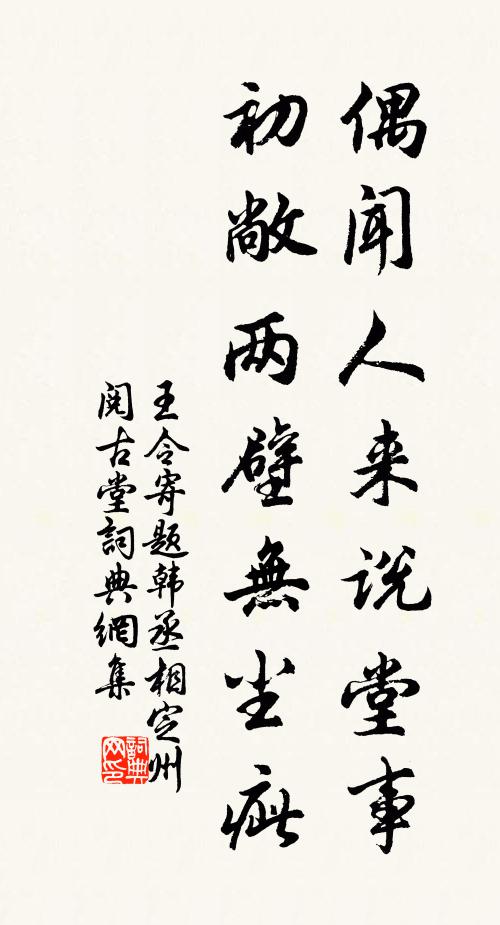 偶闻人来说堂事
初敞两壁無尘疵
王令寄题韩丞相定州
阅古堂詞典網集
詞典网印